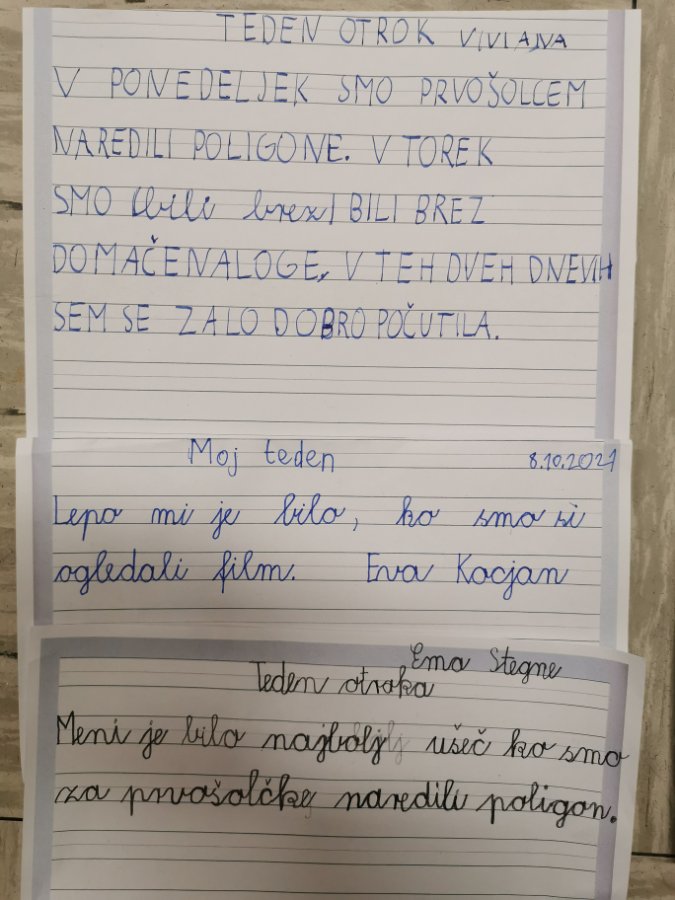 TEDEN OTROK VIVIANA
V PONEDELJEK SMO PRVOŠOLCEM
NAREDILI POLIGONE. V TOREK
SMO bili brez BILI BREZ
DOMAČE NALOGE. V TEH DVEH DNEVIH
SEM SE ZALO DOBRO POČUTILA.
Moj teden 8.10.2021
Lepo mi je bilo, ko smo si
ogledali film. Eva Kocjan
Ema Stegne
Teden otroka
Meni je bilo najbolj ušeč ko smo
za prvošolčke naredili poligon.